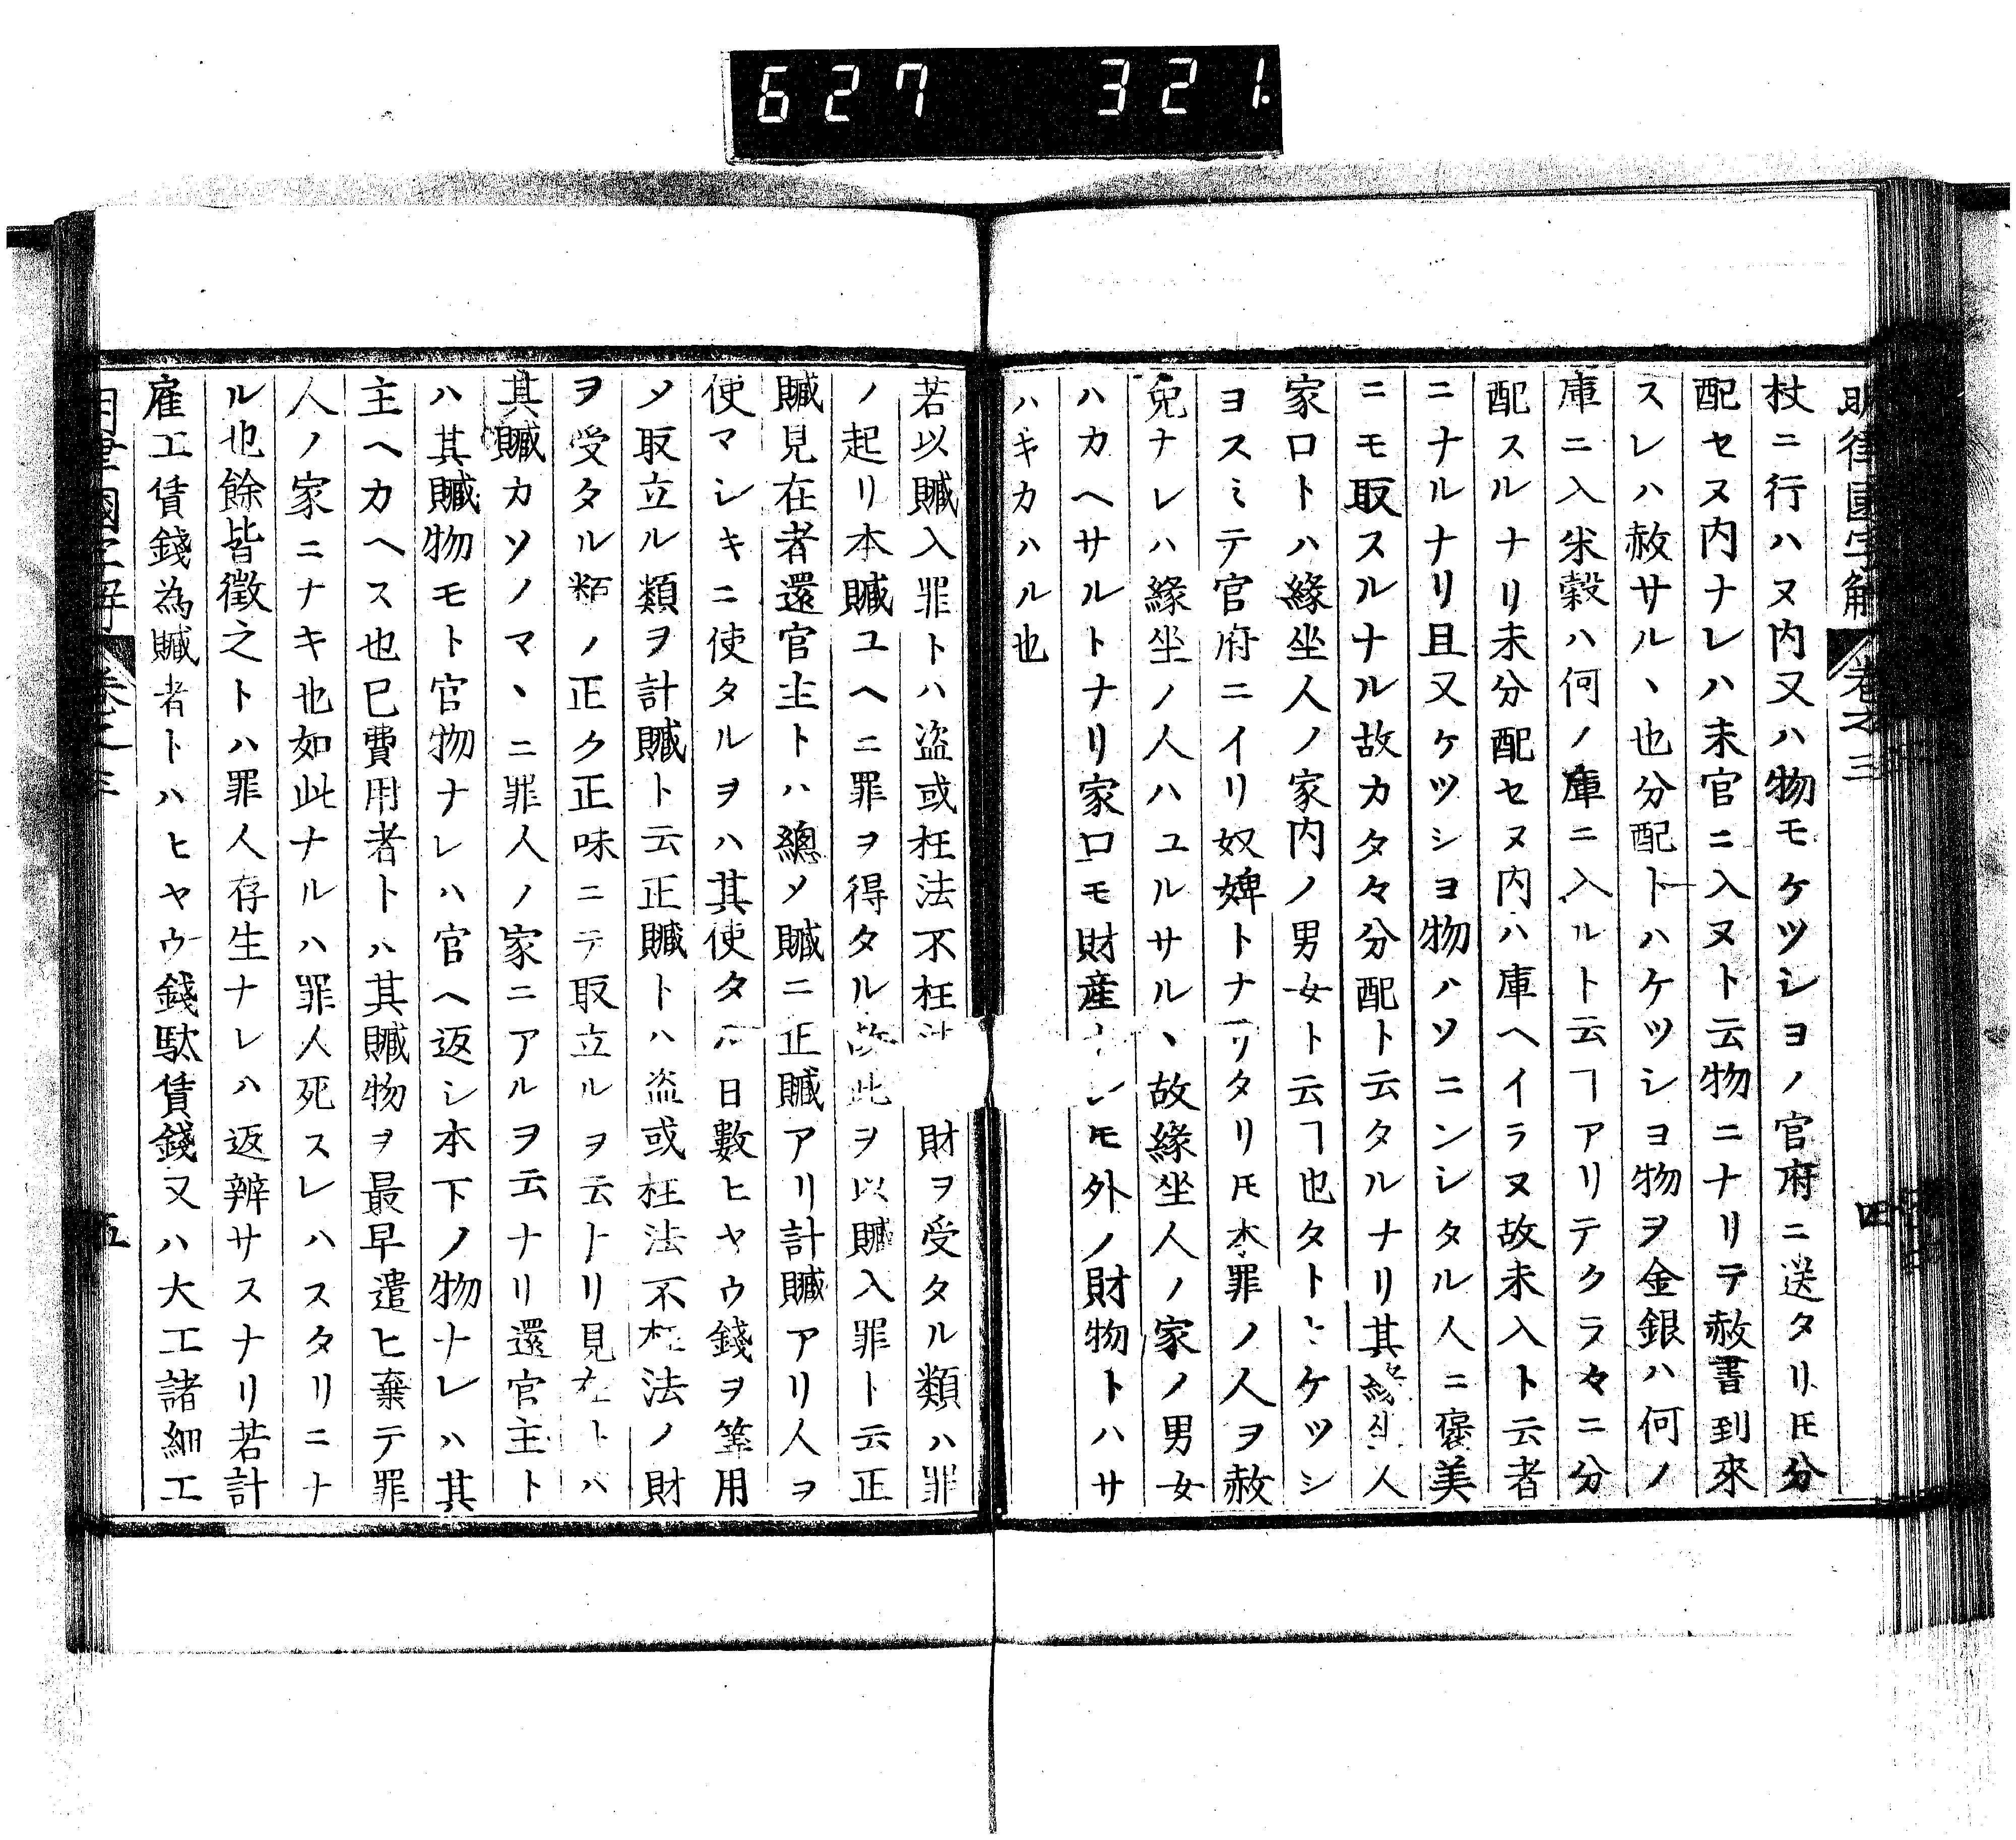 627 321.
明律國字解 卷之三 四
杖ニ行ハヌ内又ハ物モケツシヨノ官府ニ送タリ𪜈分
配セヌ内ナレハ未官ニ入ヌト云物ニナリテ赦書到來
スレハ赦サル丶也分配トハケツシヨ物ヲ金銀ハ何ノ
庫ニ入米穀ハ何ノ庫ニ入ルト云ヿアリテクラ々ニ分
配スルナリ未分配セヌ内ハ庫ヘイラヌ故未入ト云者
ニナルナリ且又ケツシヨ物ハソニンシタル人ニ褒美
ニモ取スルナル故カタ々分配ト云タルナリ其緣坐人
家口トハ緣坐人ノ家内ノ男女ト云ヿ也タトヒケツシ
ヨスミテ官府ニイリ奴婢トナリタリ𪜈本罪ノ人ヲ赦
免ナレハ緣坐ノ人ハユルサル丶故緣坐人ノ家ノ男女
ハカヘサルトナリ家口モ財産ナレ𪜈外ノ財物トハサ
ハキカハル也
若以贓入罪トハ盗或枉法不枉法財ヲ受タル類ハ罪
ノ起リ本贓ユヘニ罪ヲ得タル故此ヲ以贓入罪ト云正
贓見在者還官主トハ總メ贓ニ正贓アリ計贓アリ人ヲ
使マシキニ使タルヲハ其使タル日數ヒヤウ錢ヲ筭用
メ取立ル類ヲ計贓ト云正贓トハ盗或枉法不枉法ノ財
ヲ受タル類ノ正ク正味ニテ取立ルヲ云トリ見在トハ
其贓カソノマ丶ニ罪人ノ家ニアルヲ云ナリ還官主ト
ハ其贓物モト官物ナレハ官ヘ返シ本下ノ物ナレハ其
主ヘカヘス也已費用者トハ其贓物ヲ最早遣ヒ棄テ罪
人ノ家ニナキ也如此ナルハ罪人死スレハスタリニナ
ル也餘皆徵之トハ罪人存生ナレハ返辨サスナリ若計
雇工賃錢為贓者トハヒヤウ錢駄賃錢又ハ大工諸細工
明律國字解 卷之三 五